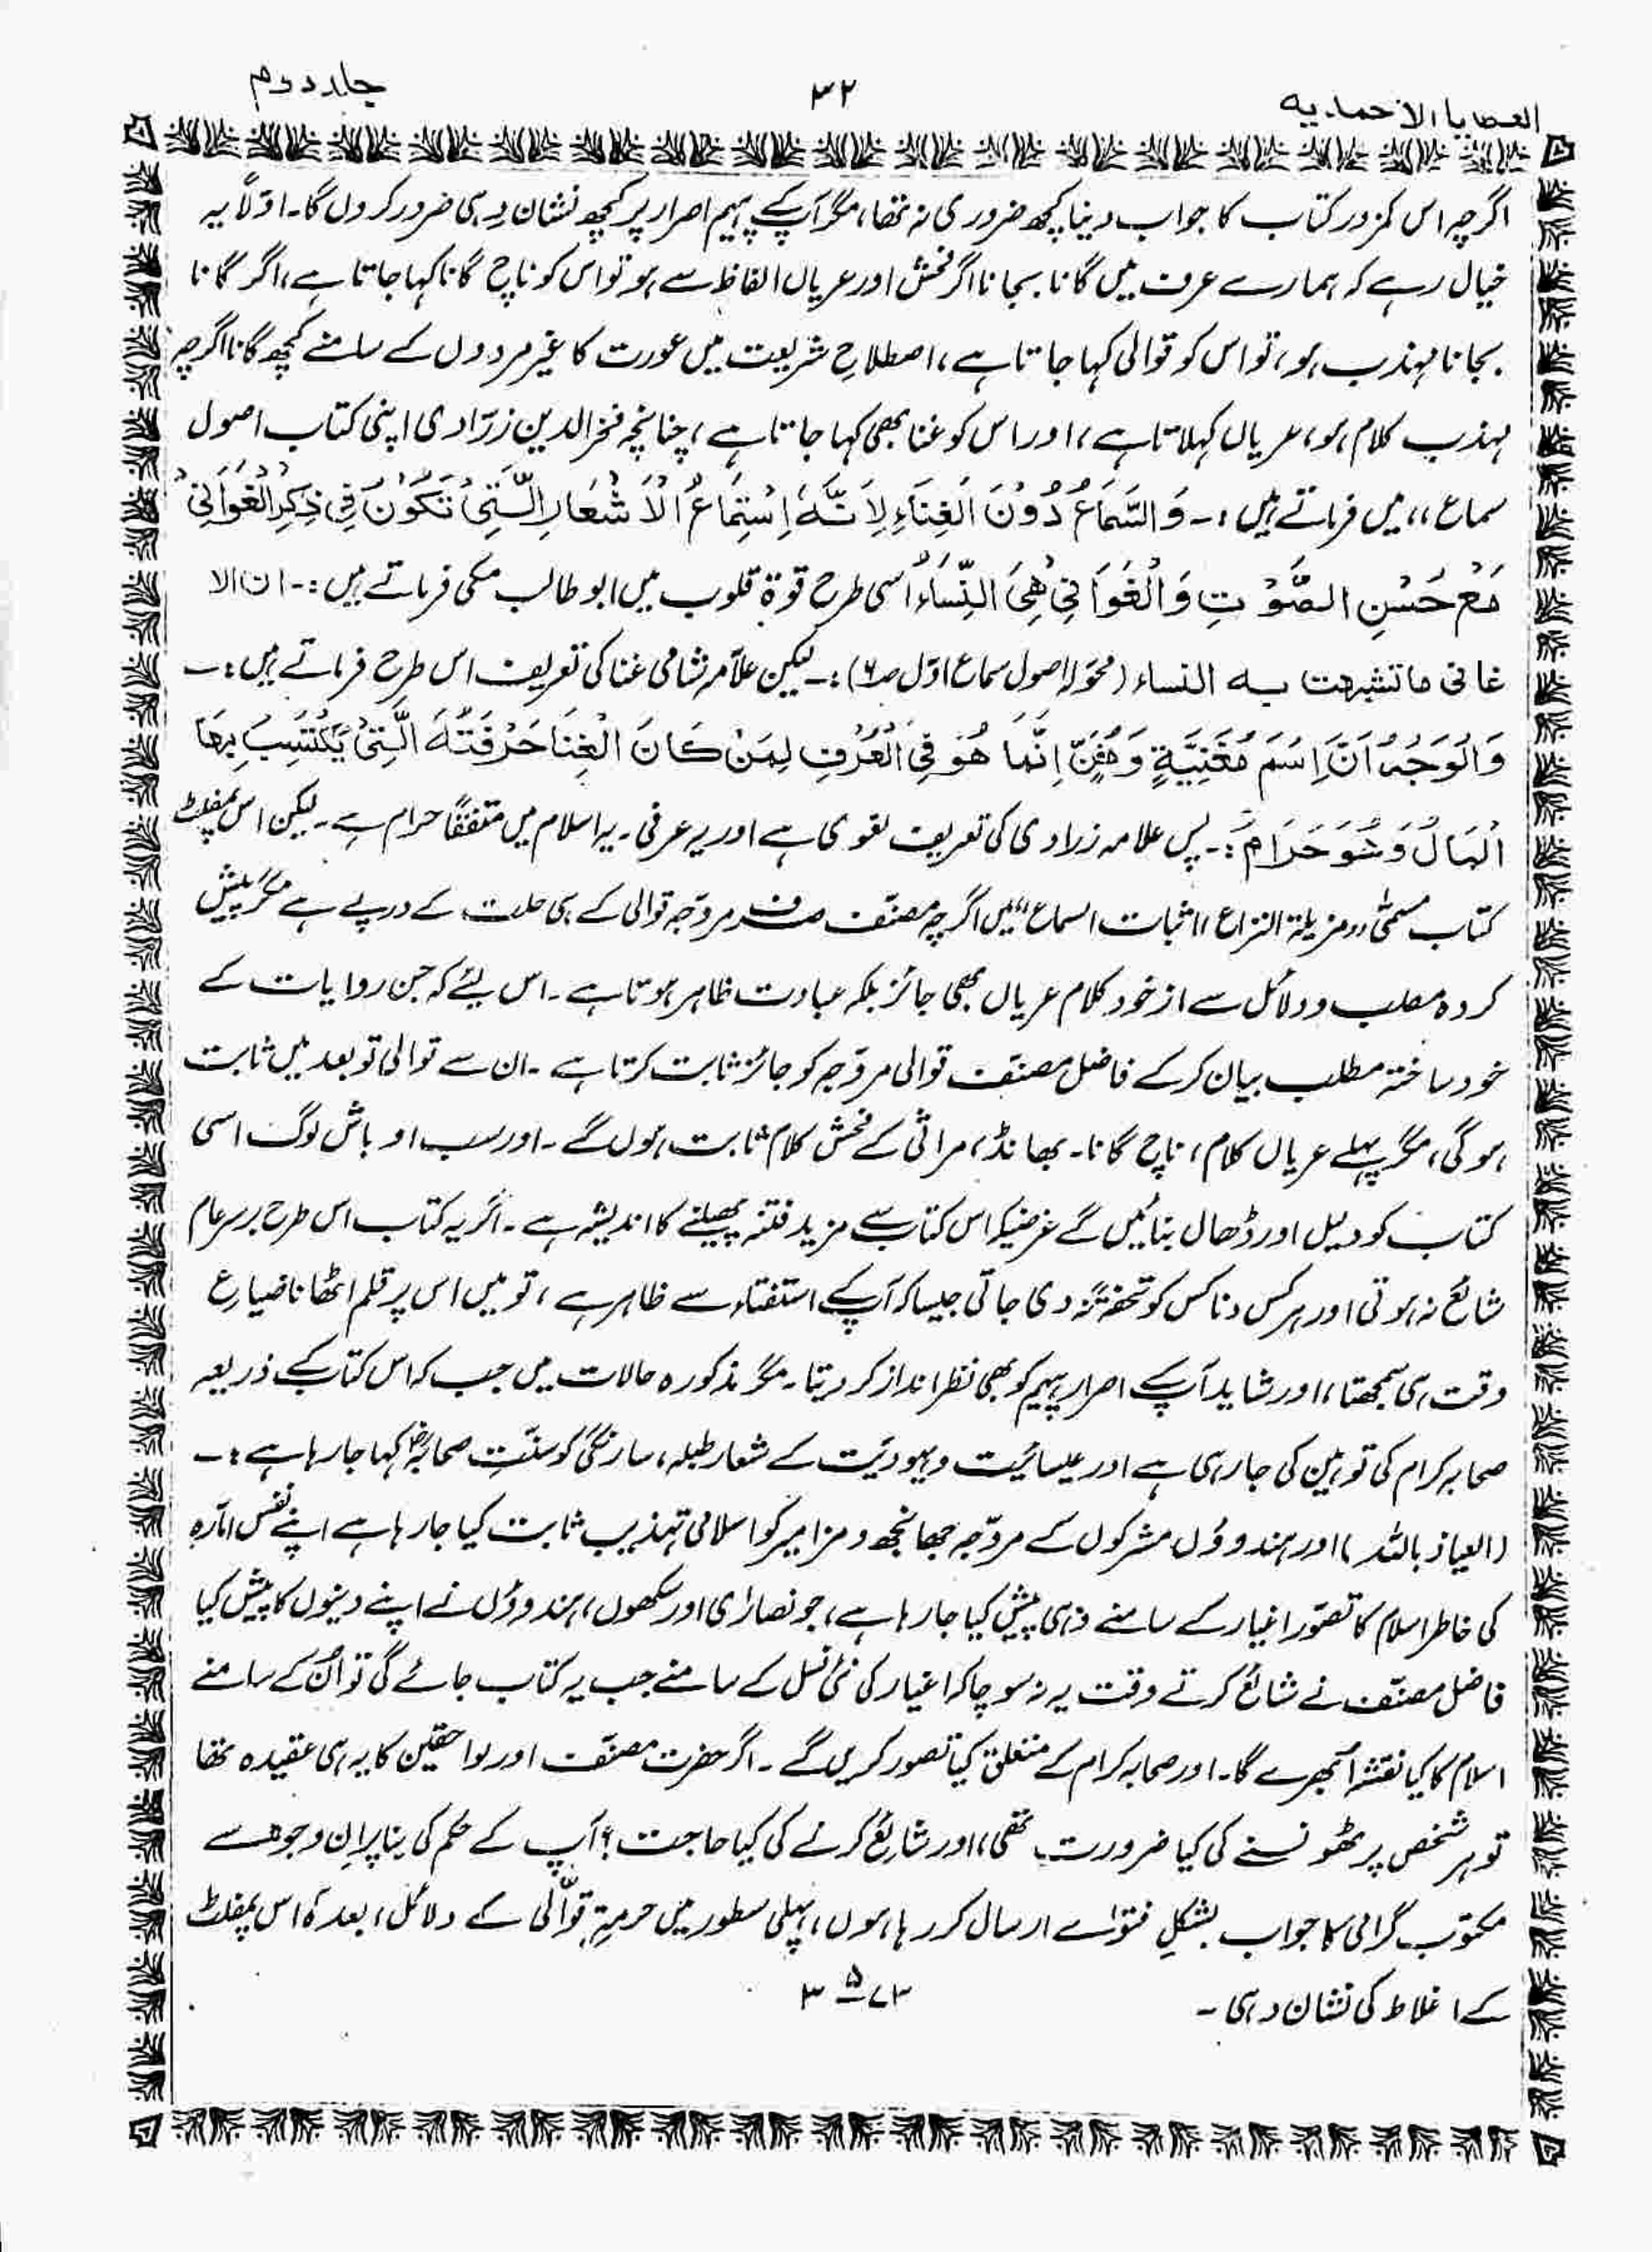 العطایا الاحمدیہ
۳۲
جلد دوم
اگرچہ اس کمزور کتاب کا جواب دینا کچھ ضروری نہ تھا، مگر آپ کے پیہم اصرار پر کچھ نشان دہی ضرور کر دوں گا۔ اوّلاً یہ
خیال رہے کہ ہمارے عرف میں گانا بجانا اگر فحش اور عریاں الفاظ سے ہو تو اس کو ناچ گانا کہا جاتا ہے، اگر گانا
بجانا مہذب ہو، تو اس کو قوالی کہا جاتا ہے، اصطلاحِ شریعت میں عورت کا غیر مردوں کے سامنے کچھ گانا اگرچہ
مہذب کلام ہو، عریاں کہلاتا ہے، اور اس کو غنا بھی کہا جاتا ہے، چنانچہ فخر الدین زرّادی اپنی کتاب اصول
سماع،، میں فرماتے ہیں :۔ وَالسَّمَاعُ دُوْنَ الْغِنَاءِ لِاَنَّهٗ اِسْتِمَاعُ الْاَشْعَارِ الَّتِیْ تَکُوْنُ فِیْ ذِکْرِ الْغَوَانِیْ
مَعْ حُسْنِ الصَّوْتِ وَالْغَوَانِیْ هِیَ النِّسَاءُ اسی طرح قوۃ قلوب میں ابو طالب مکی فرماتے ہیں :۔ ان الا
غانی ما تشبہت بہ النساء (محوّلہ اصول سماع اوّل صہ۶) :۔ لیکن علاّمہ شامی غنا کی تعریف اس طرح فرماتے ہیں :۔
وَالْوَجْهُ اَنَّ اِسْمَ مُغَنِیَّةٍ وَمُغَنٍّ اِنَّمَا هُوَ فِی الْعُرْفِ لِمَنْ کَانَ الْغِنَا حَرْفَتُهٗ الَّتِیْ یَکْتَسِبُ بِهَا
الْمَالَ وَهُوَ حَرَامٌ :۔ پس علامہ زرادی کی تعریف لغوی ہے اور یہ عرفی۔ یہ اسلام میں متفقًا حرام ہے۔ لیکن اس پمفلٹ
کتاب مسمّٰی ،، مزیلۃ النزاع ،، اثبات السماع ،، میں اگرچہ مصنّف صرف مروّجہ قوالی کے ہی حلت کے درپے ہے مگر پیش
کردہ مطلب و دلائل سے از خود کلام عریاں بھی جائز بلکہ عبادت ظاہر ہوتا ہے۔ اس لیے کہ جن روایات کے
خود ساختہ مطلب بیان کرکے فاضل مصنّف قوالی مروّجہ کو جائز ثابت کرتا ہے۔ ان سے قوالی تو بعد میں ثابت
ہوگی، مگر پہلے عریاں کلام، ناچ گانا۔ بھانڈ، مراثی کے فحش کلام ثابت ہوں گے۔ اور سب اوباش لوگ اسی
کتاب کو دلیل اور ڈھال بنائیں گے غرضیکہ اس کتاب سے مزید فتنہ پھیلنے کا اندیشہ ہے۔ اگر یہ کتاب اس طرح برسرعام
شائع نہ ہوتی اور ہر کس و ناکس کو تحفۃً نہ دی جاتی جیسا کہ آپ کے استفتاء سے ظاہر ہے، تو میں اس پر قلم اٹھانا ضیارع
وقت ہی سمجھتا، اور شاید آپ کے اصرار پیہم کو بھی نظر انداز کر دیتا۔ مگر مذکورہ حالات میں جب کہ اس کتاب کے ذریعہ
صحابہ کرام کی توہین کی جارہی ہے اور عیسائیت و یہودیّت کے شعار طبلہ، سارنگی کو سنّتِ صحابہؓ کہا جارہا ہے :۔
(العیاذ باللہ) اور ہندوؤں مشرکوں کے مروّجہ جھانجھ و مزامیر کو اسلامی تہذیب ثابت کیا جارہا ہے اپنے نفس امّارہ
کی خاطر اسلام کا تصوّر اغیار کے سامنے وہی پیش کیا جارہا ہے، جو نصارٰی اور سکھوں، ہندوؤں نے اپنے دینوں کا پیش کیا
فاضل مصنّف نے شائع کرتے وقت یہ نہ سوچا کہ اغیار کی نئی نسل کے سامنے جب یہ کتاب جائے گی تو اُن کے سامنے
اسلام کا کیا نقشہ اُبھرے گا۔ اور صحابہ کرام کے متعلق کیا تصور کریں گے۔ اگر حضرت مصنّف اور لواحقین کا یہ ہی عقیدہ تھا
تو ہر شخص پر ٹھونسنے کی کیا ضرورت تھی، اور شائع کرنے کی کیا حاجت؟ آپ کے حکم کی بنا پر اِن وجوہ سے
مکتوب گرامی کا جواب بشکلِ فتوٰے ارسال کر رہا ہوں، پہلی سطور میں حرمتِ قوّالی کے دلائل، بعدہٗ اس پمفلٹ
کے اغلاط کی نشان دہی ۔
۳ ۵ ۷۳